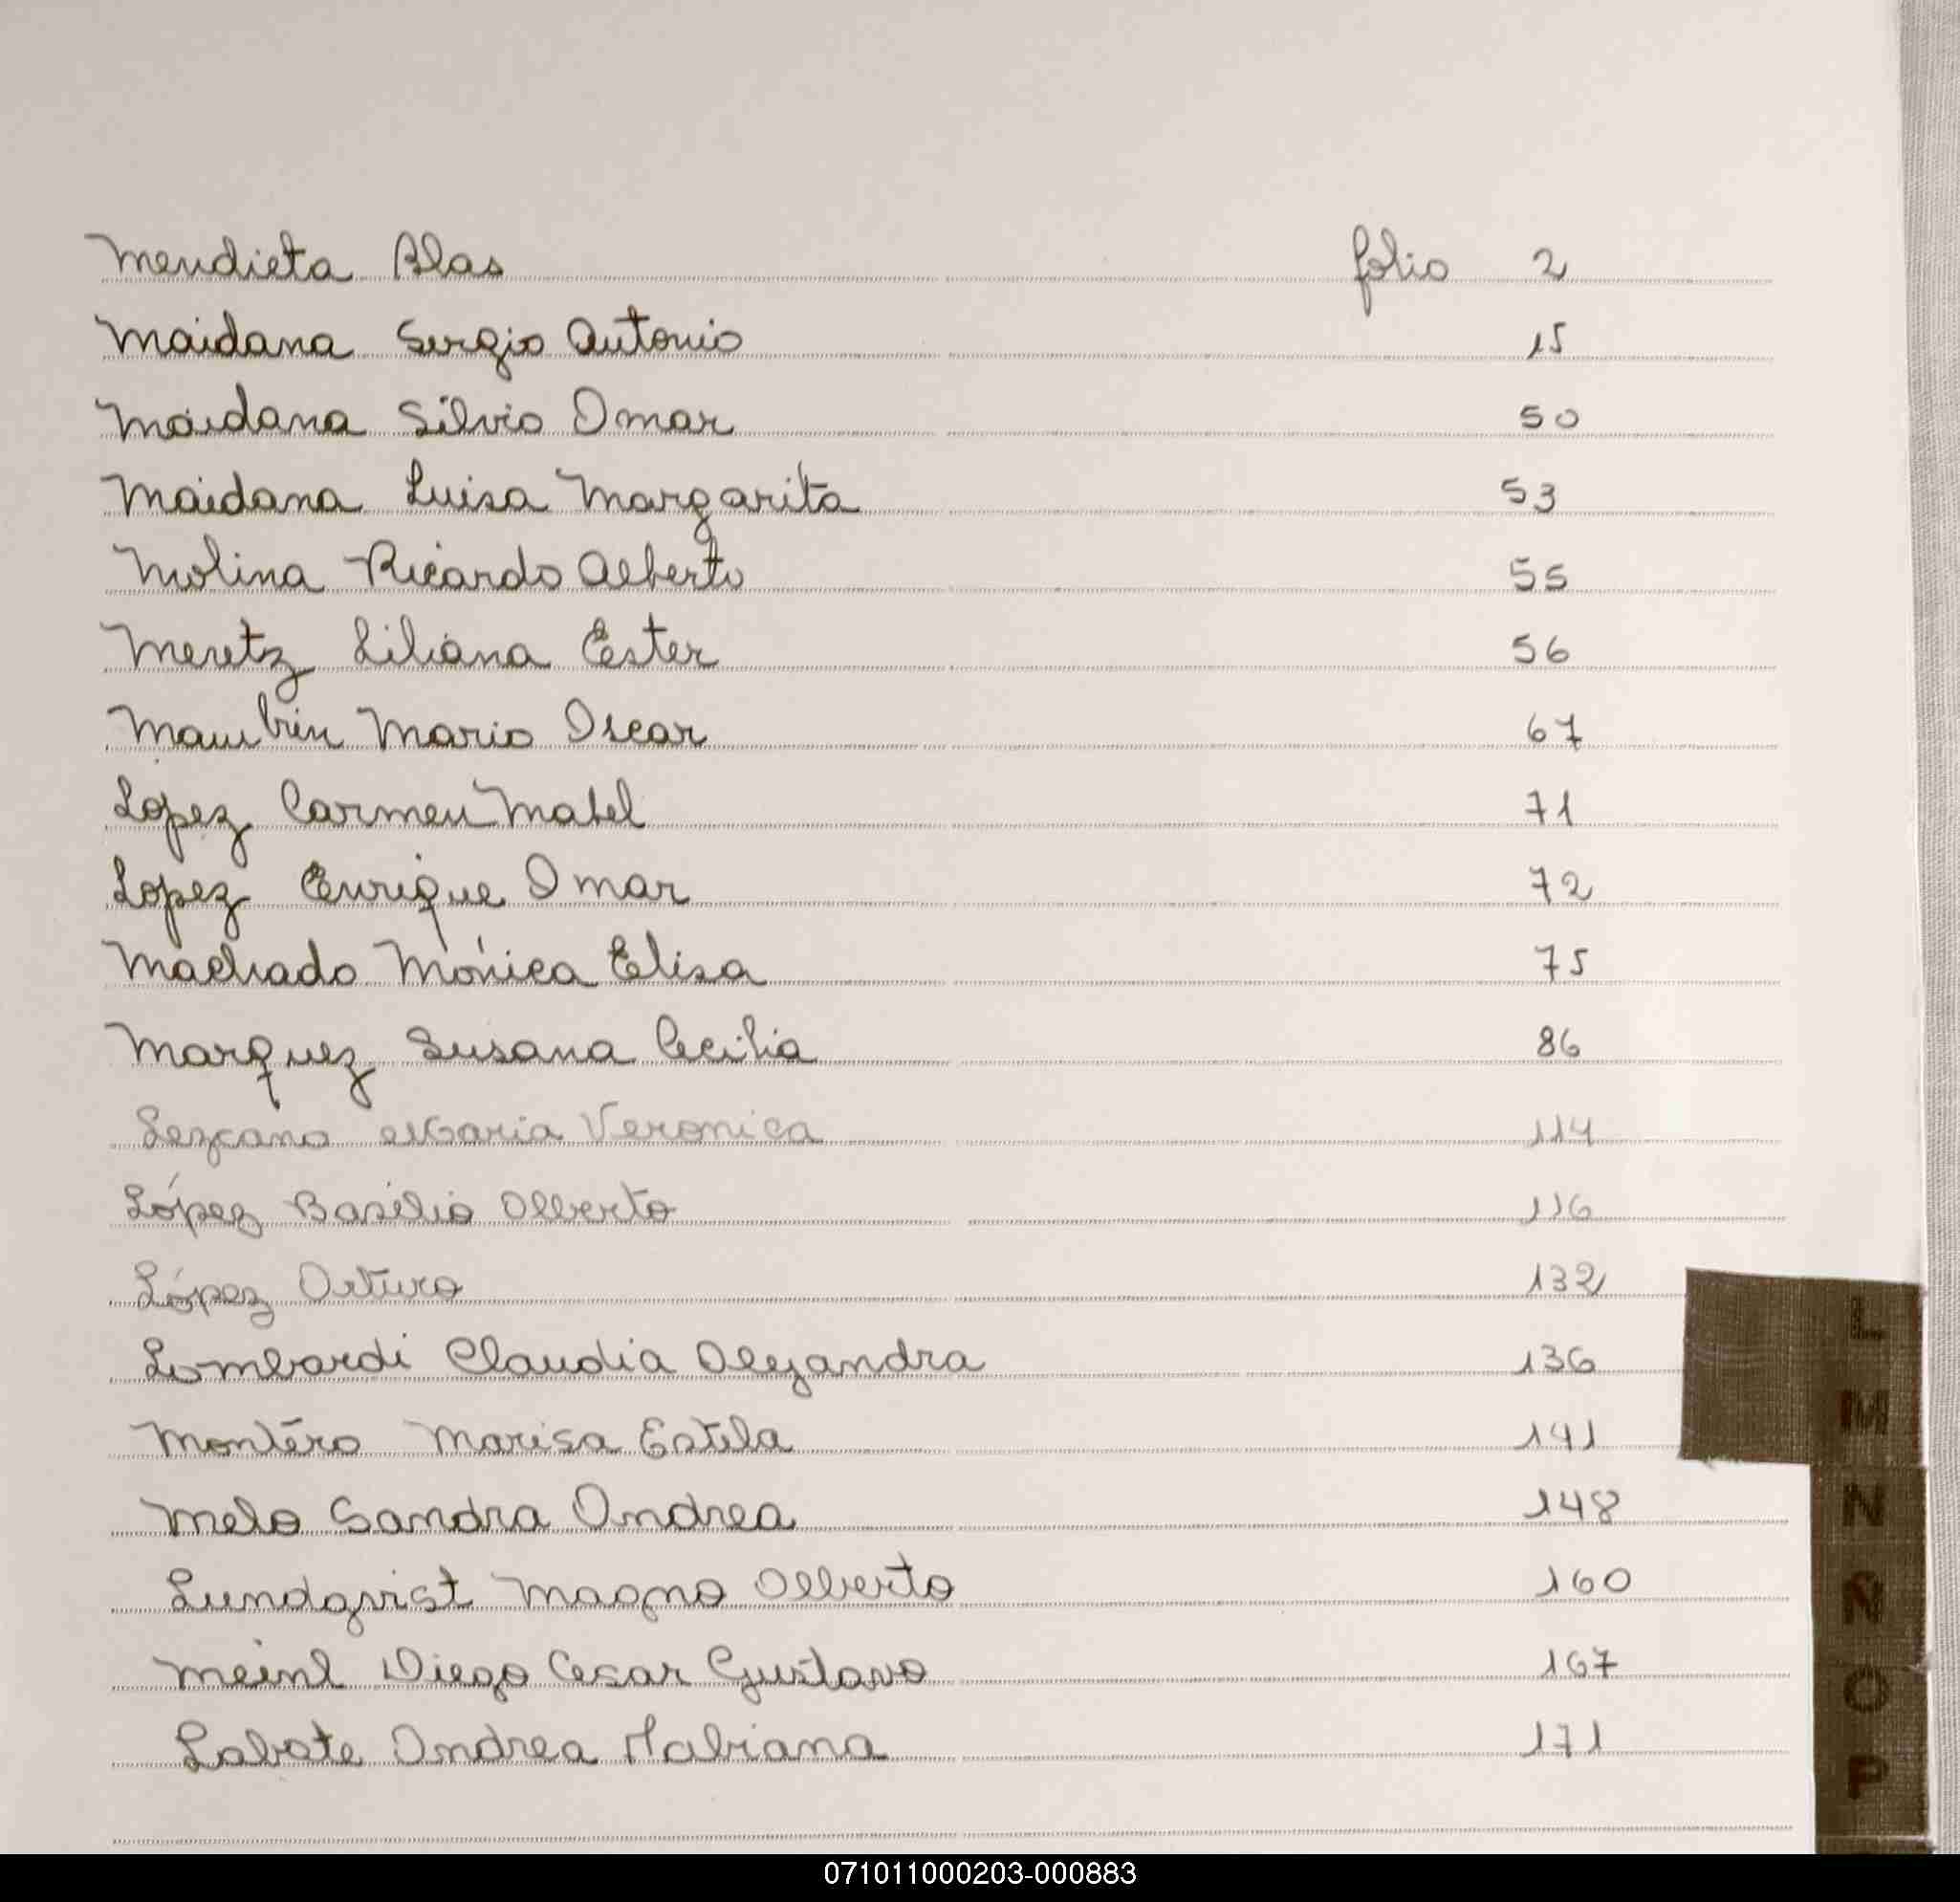 Mendieta Blas folio 2
Maidana Sergio Antonio 15
Maidana Silvio Omar 50
Maidana Luisa Margarita 53
Molina Ricardo Alberto 55
Meretz Liliana Ester 56
Mario Oscar 67
Lopez Carmen Mabel 71
Lopez Enrique Omar 72
Machado Mónica Elisa 75
Marquez Susana Cecilia 86
Lezcano Maria Veronica 114
López Basilio Alberto 116
López Arturo 132
Lombardi Claudia Alejandra 136
Montero Marisa Estela 141
Melo Sandra Andrea 148
Lundqvist Magno Alberto 160
Meinl Diego Cesar Gustavo 167
Labate Andrea Fabiana 171
L
M
N
Ñ
O
P
071011000203-000883